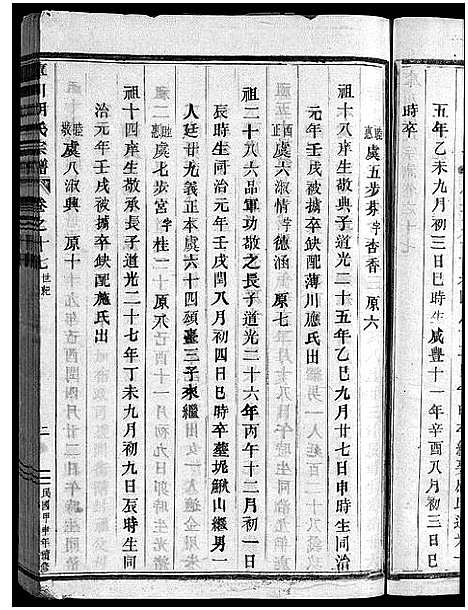 五年乙未九月初三日巳時生咸豐十一年辛酉八月初三日巳
時卒
睦惠虞五步芬字杏香 原六
祖十八庠生敬典子道光二十五年乙巳九月廿七日申時生同治
元年壬戌被擄卒缺配薄川應氏出
虞六淑情字德涵 原七
祖二十八六品軍功敬之長子道光二十六年丙午十二月初一日
辰時生同治元年壬戌閏八月初四日巳時卒墓坭鰍山繼男一
人廷廿九義正本虞六十四頌臺三子來繼
睦惠虞七步宮字桂二十 原八
祖十四庠生敬承長子道光二十七年丁未九月初九日辰時生同
治元年壬戌被擄卒缺配施氏出
睦敬虞八淑興 原十
氏宗譜 卷之十七 世紀 二 民國甲申年續修